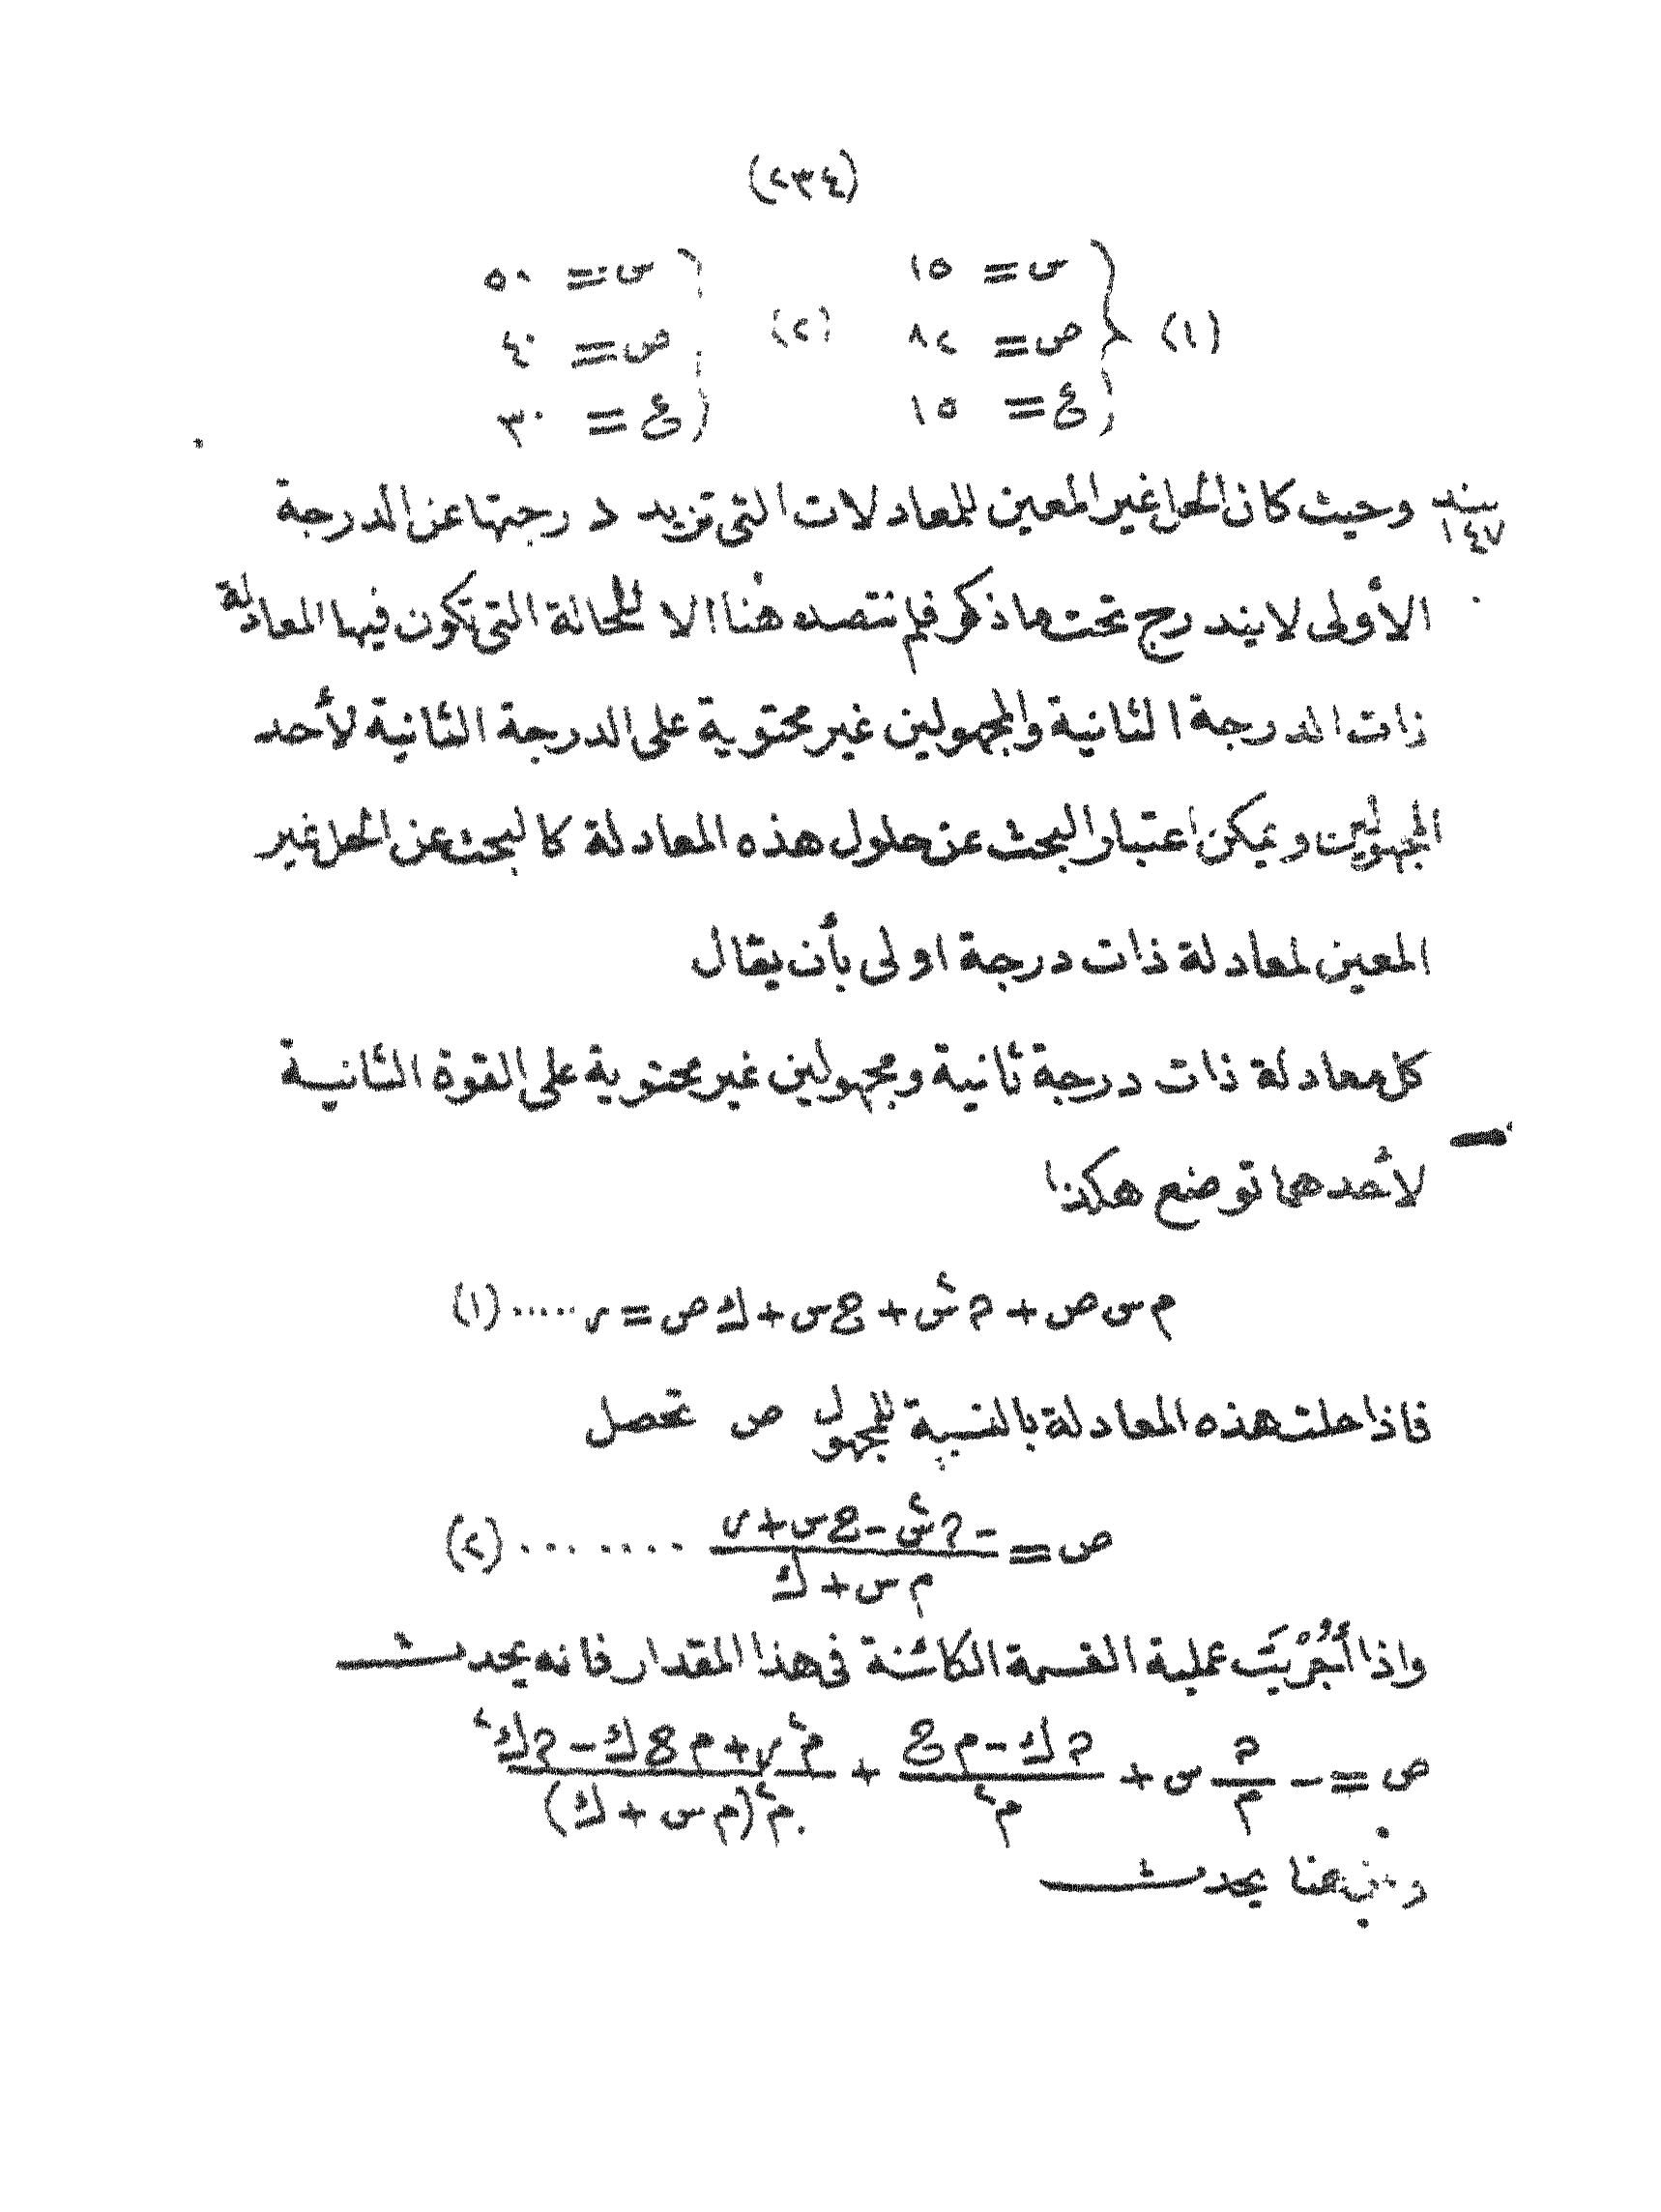 (٢٣٤)
(١) س = ١٥ (٢) س = ٥٠
ص = ٢٨ ص = ٤٠
ع = ١٥ ع = ٣٠
بند ١٤٧ وحيث كان الحل غير المعين للمعادلات التى تزيد درجتها عن الدرجة
الأولى لا يندرج تحت ما ذكر فلم نتصد هنا الا للحالة التى تكون فيها المعادلة
ذات الدرجة الثانية والمجهولين غير محتوية على الدرجة الثانية لأحد
المجهولين ويمكن اعتبار البحث عن حلول هذه المعادلة كالبحث عن الحل غير
المعين لمعادلة ذات درجة اولى بأن يقال
كل معادلة ذات درجة ثانية ومجهولين غير محتوية على القوة الثانية
لأحدهما توضع هكذا
م س ص + ? س٢ + ع س + ك ص = ں ..... (١)
فاذا حلت هذه المعادلة بالنسبة للمجهول ص تحصل
ص = (- ? س٢ - ع س + ں) / (م س + ك) ....... (٢)
واذا أُجْرِيَت عملية القسمة الكائنة فى هذا المقدار فانه يحدث
ص = - ?/م س + (? ك - م ع)/م٢ + (م٢ ں + م ع ك - ? ك٢)/(م٢ (م س + ك))
ومن هنا يحدث